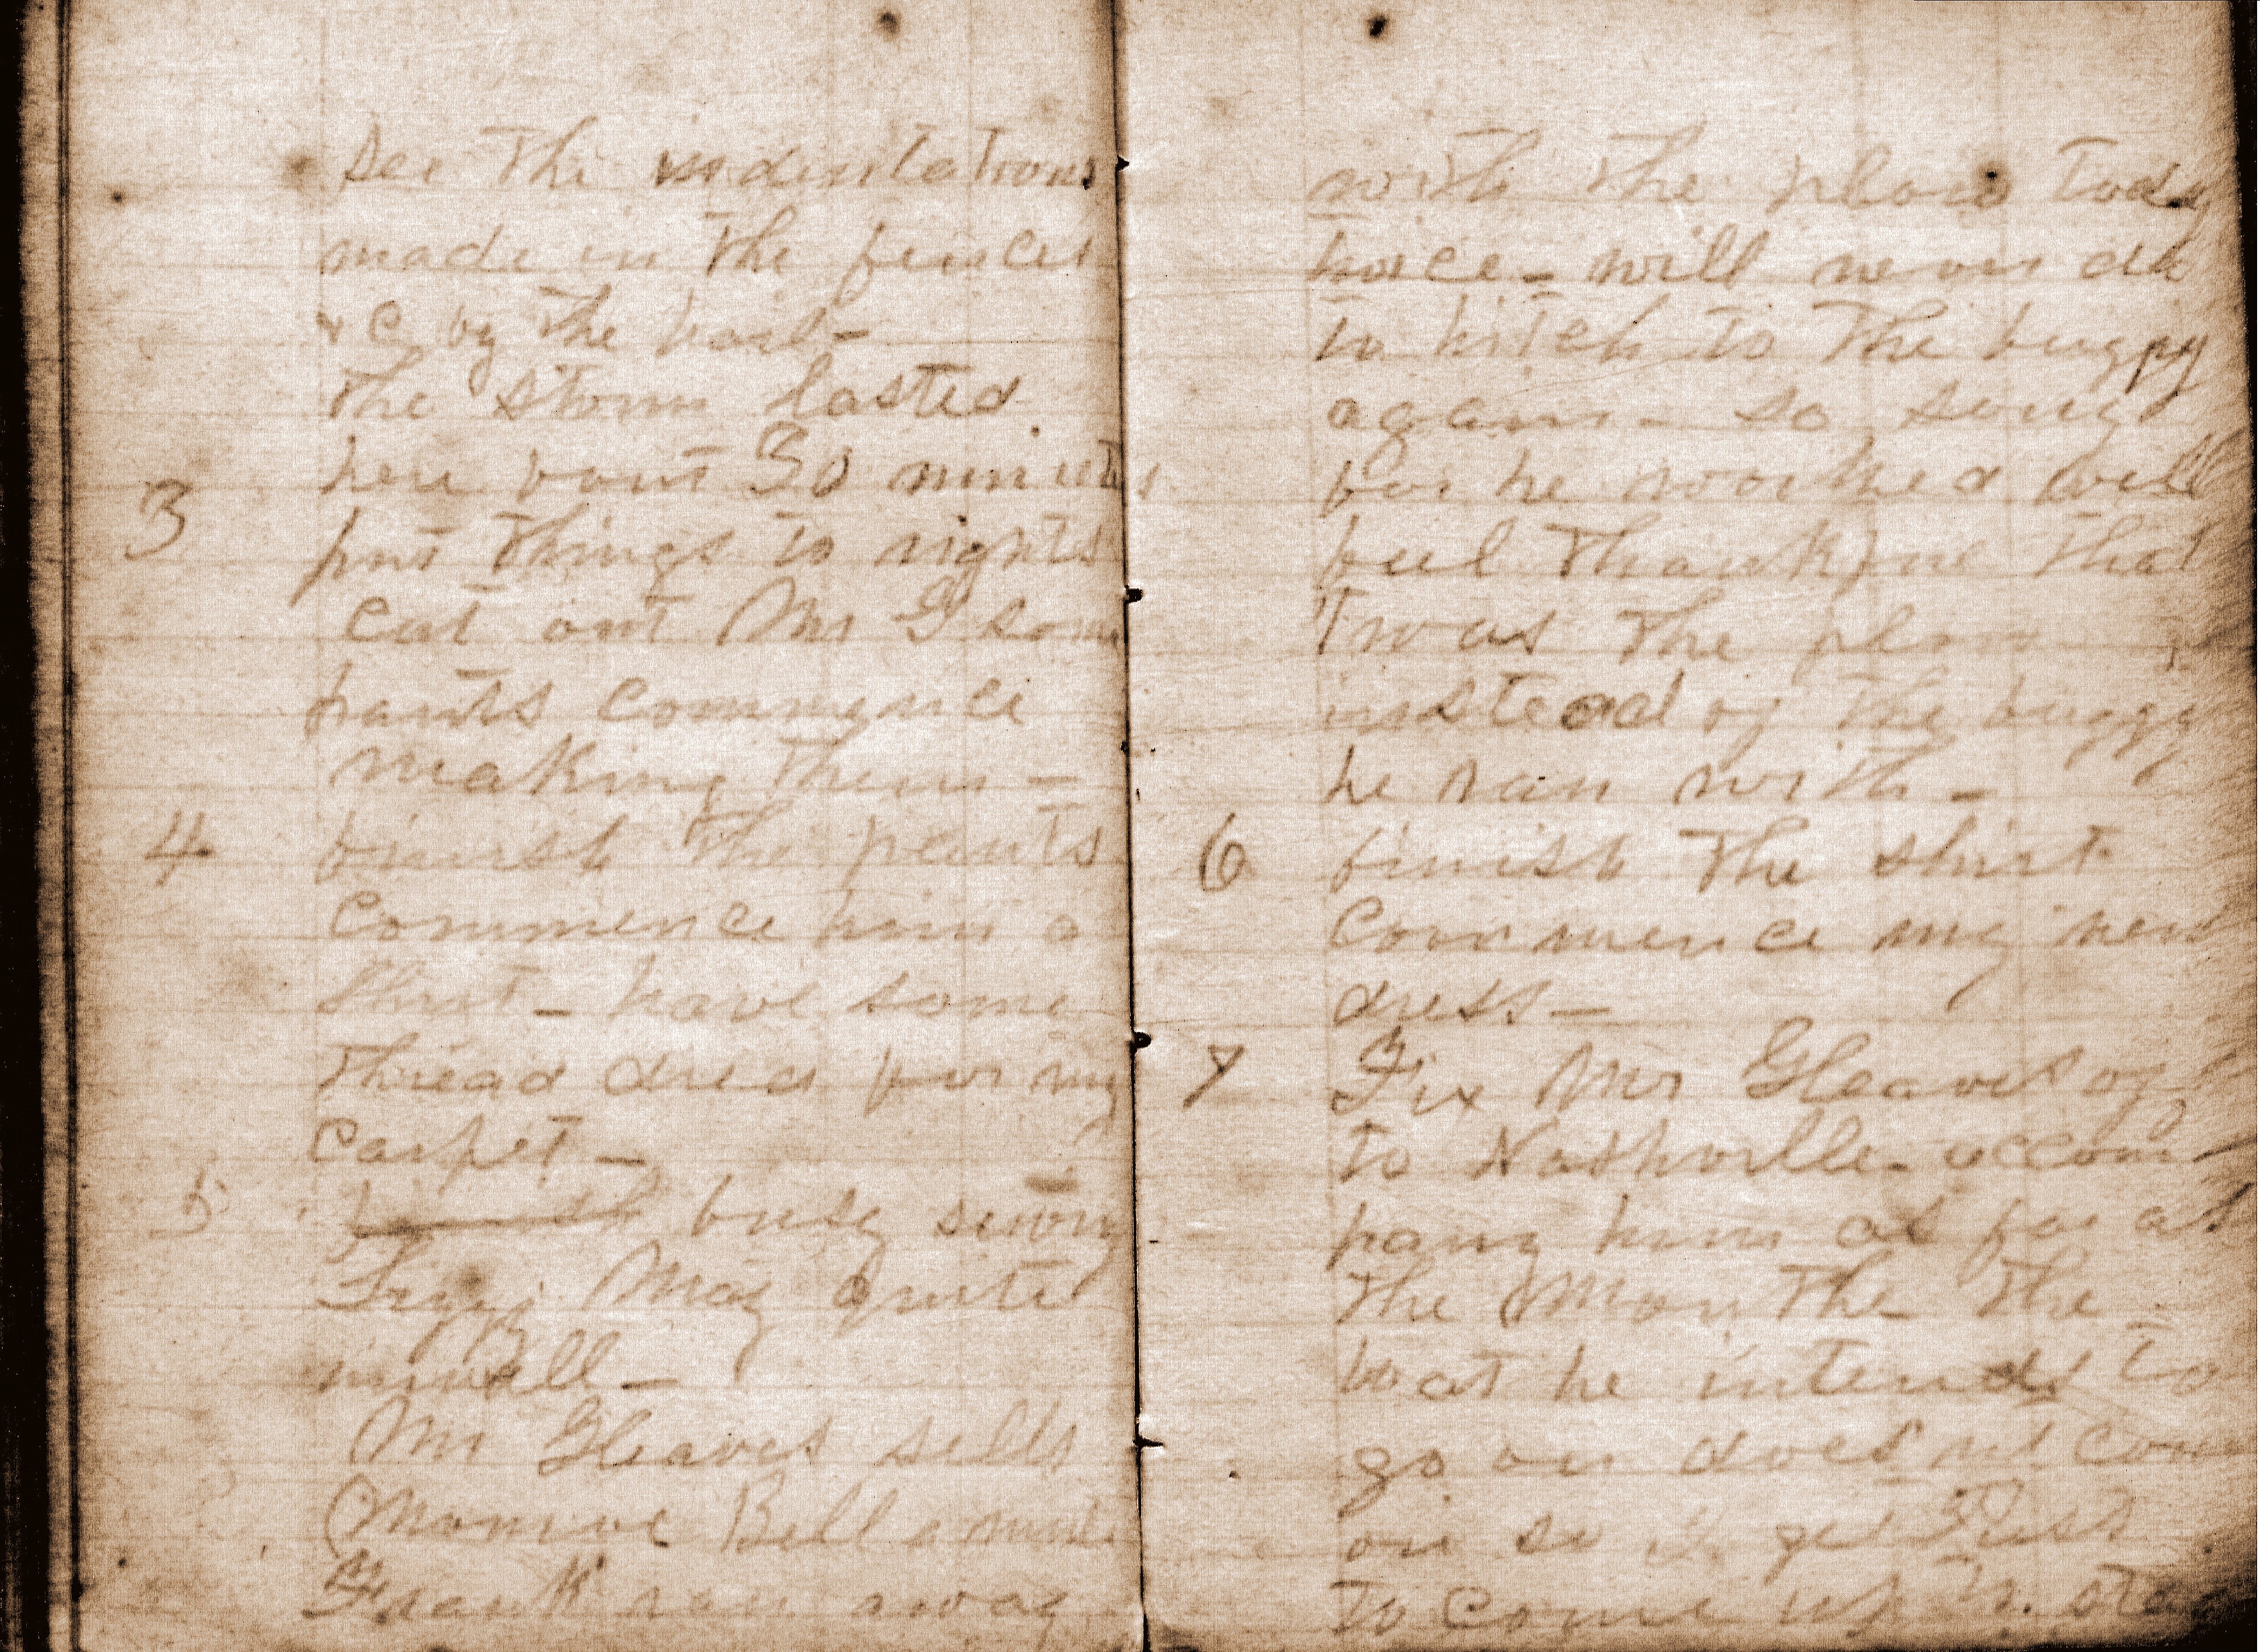 see the indentations
made in the fences
&C by the hail-
the storm lasted
here bout 30 minutes
3 put things to rights
cut out Mr G some
pants commence
making them -
4 finish the pants
commence him a
shirt - have some
thread dried for my
carpet -
5 finish busy sewing
Lizzy May quite
unwell -
Mr Gleaves sells
Monroe Bell a mule
Frank ran away
with the plow today
twice - will never do
to hitch to the buggy
again - so sorry
for he worked well
feel thankful that
Twas the plow
instead of the buggy
he ran with -
6 finish the shirt
commence my new
dress -
7 Fix Mr Gleaves off
to Nashville - accom-
pany him as far as
the Mouth - the
boat he intends to
go on does not come
on so I get
to come up